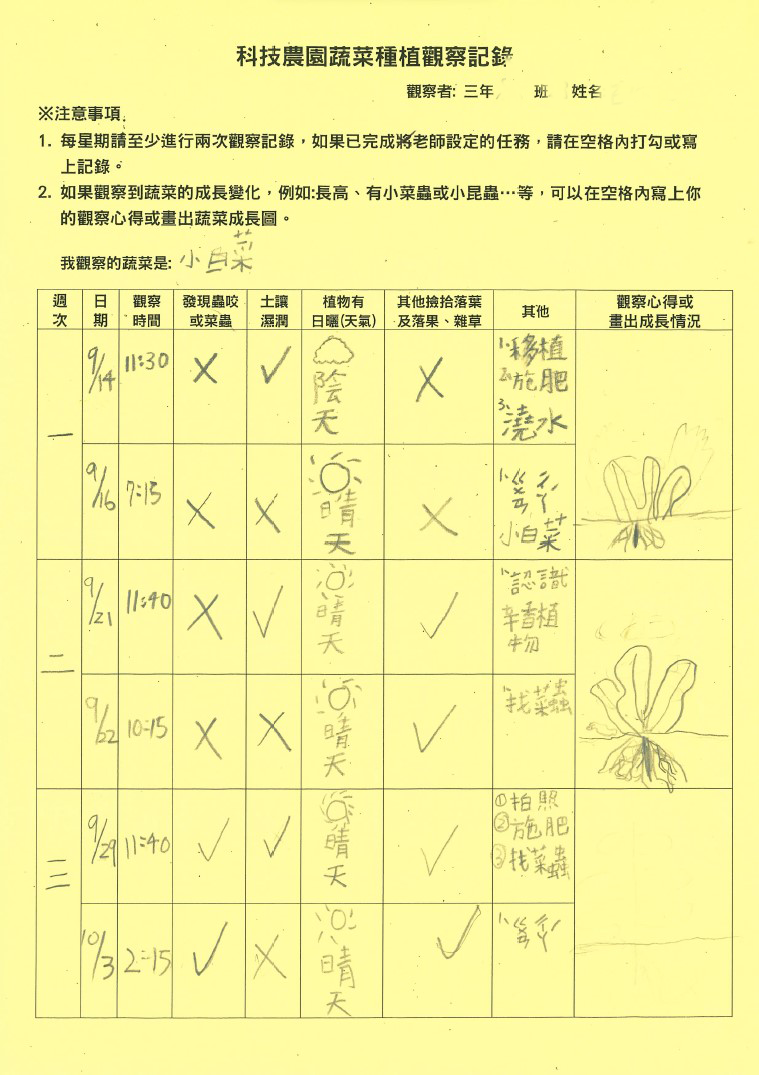 科技農園蔬菜種植觀察記錄
觀察者: 三年 班 姓名
※注意事項
1. 每星期請至少進行兩次觀察記錄，如果已完成將老師設定的任務，請在空格內打勾或寫
上記錄。
2. 如果觀察到蔬菜的成長變化，例如:長高、有小菜蟲或小昆蟲…等，可以在空格內寫上你
的觀察心得或畫出蔬菜成長圖。
我觀察的蔬菜是: 小白菜
週次 日期 觀察時間 發現蟲咬或菜蟲 土讓濕潤 植物有日曬(天氣) 其他撿拾落葉及落果、雜草 其他 觀察心得或畫出成長情況
一 9/14 11:30 ✗ ✓ 陰天 ✗ 1、移植 2、施肥 3、澆水
9/16 7:15 ✗ ✗ 晴天 ✗ 1、 小白菜
二 9/21 11:40 ✗ ✓ 晴天 ✓ 1、認識辛香植物
9/22 10:15 ✗ ✗ 晴天 ✓ 1、找菜蟲
三 9/29 11:40 ✓ ✓ 晴天 ✓ ①拍照 ②施肥 ③找菜蟲
10/3 2:15 ✓ ✗ 晴天 ✓ 1、